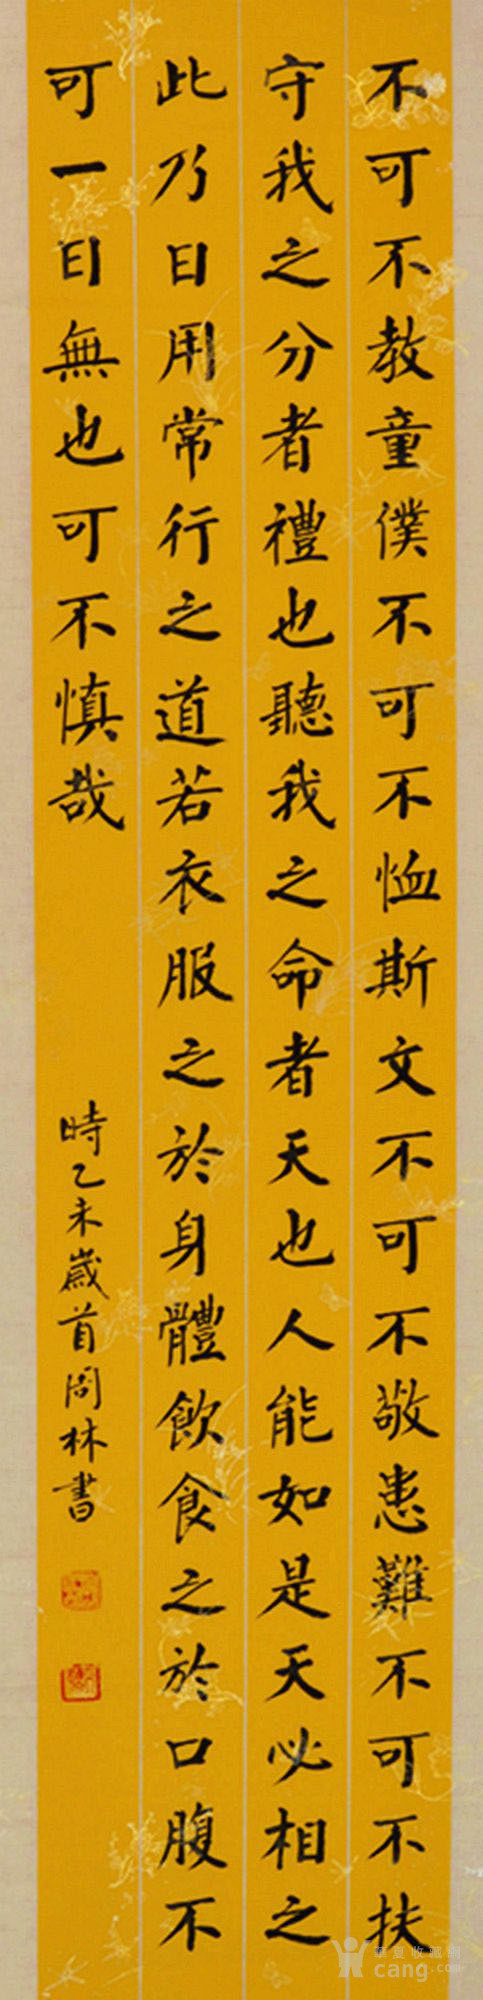 不可不教童僕不可不恤斯文不可不敬患難不可不扶
守我之分者禮也聽我之命者天也人能如是天必相之
此乃日用常行之道若衣服之於身體飲食之於口腹不
可一日無也可不慎哉
時乙未歲首周林書
cang.com